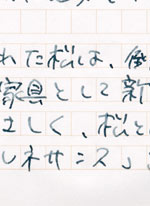 れた松は、倒
家具として新
さしく、松と
ルネサンス」